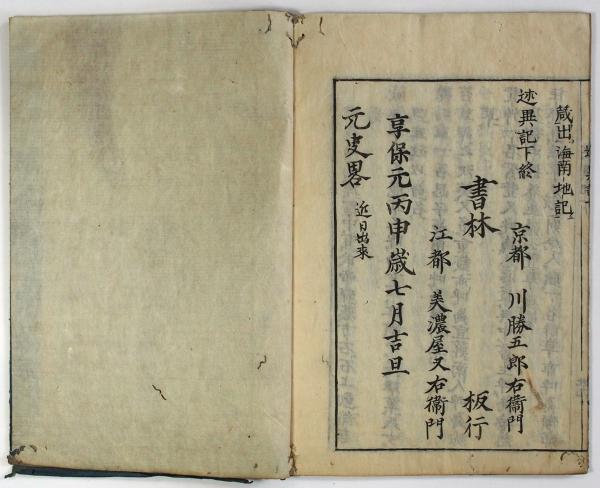 蔵出海南地記
述異記下終
京都 川勝五郎右衛門
書林 板行
江都 美濃屋又右衛門
享保元丙申歳七月吉旦
元史畧 近日出來